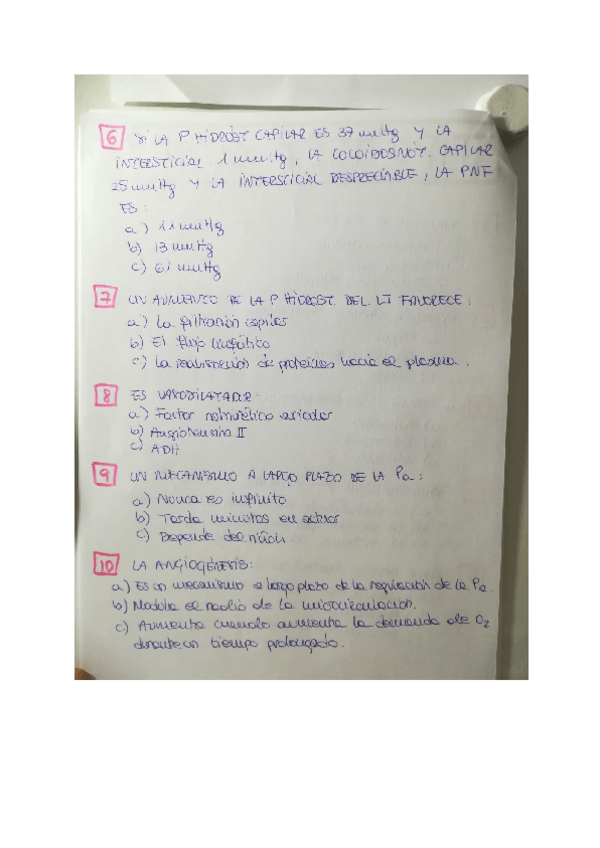 6 SI LA P HIDROST CAPILAR ES 37 mmHg Y LA
INTERSTICIAL 1 mmHg, LA COLOIDOSMÓT. CAPILAR
25 mmHg Y LA INTERSTICIAL DESPRECIABLE, LA PNF
ES:
a) 11 mmHg
b) 13 mmHg
c) 61 mmHg
7 UN AUMENTO DE LA P HIDROST. DEL LI FAVORECE:
a) La filtración capilar
b) El flujo linfático
c) La reabsorción de proteínas hacia el plasma.
8 ES VASODILATADOR:
a) Factor natriurético auricular
b) Angiotensina II
c) ADH
9 UN MECANISMO A LARGO PLAZO DE LA Pa:
a) Nunca es infinito
b) Tarda minutos en actuar
c) Depende del riñón.
10 LA ANGIOGÉNESIS:
a) Es un mecanismo a largo plazo de la regulación de la Pa.
b) Modula el radio de la microcirculación.
c) Aumenta cuando aumenta la demanda de O2
durante un tiempo prolongado.